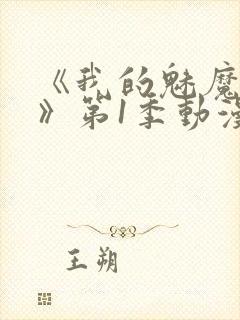 《我的魅魔
》第1季動漫
王朔